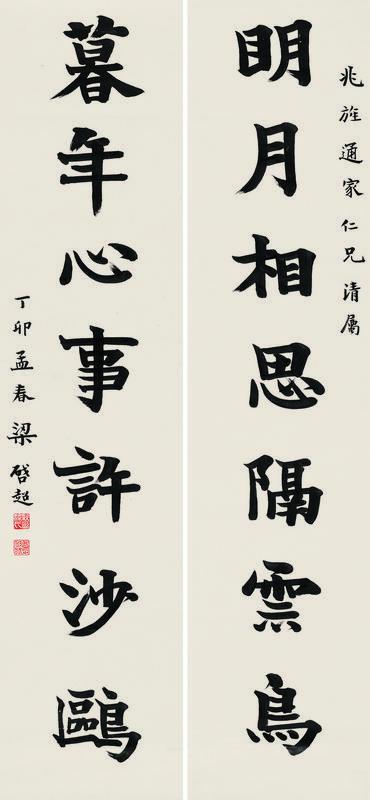 兆旌通家仁兄清屬
明月相思隔雲鳥
暮年心事許沙鷗
丁卯孟春梁啓超